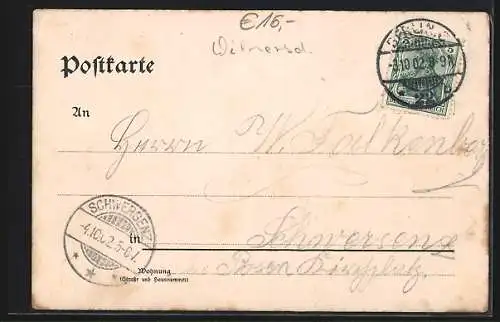 €16,-
Wilmersd.
BERLIN
-3.10.02.8-9N.
Postkarte
An
Herrn W. Falkenberg
SCHWERSENZ
-4.10.02.5-6V.
in Schwersenz
Posen Kirchplatz
Wohnung
(Straße und Hausnummer)